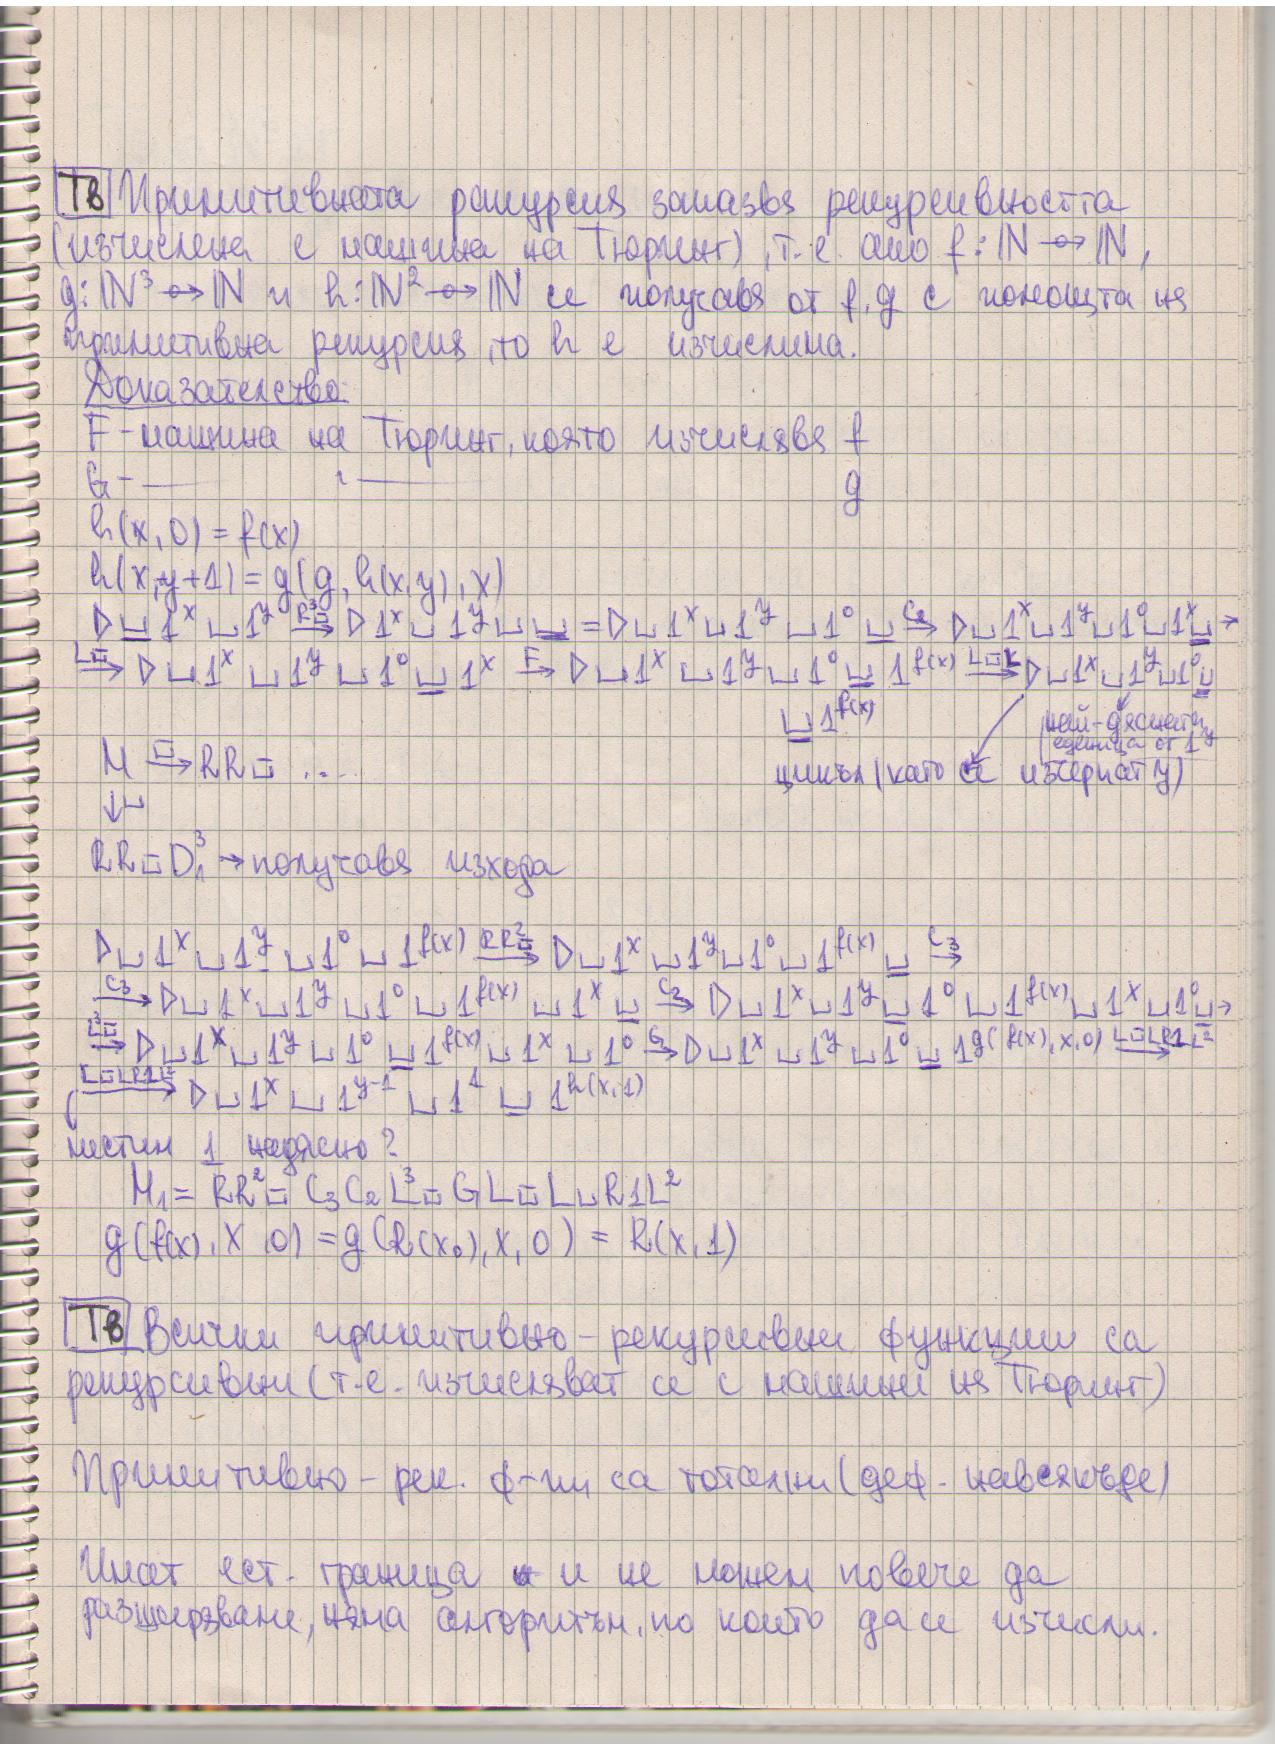 Тв Примитивната рекурсия запазва рекурсивността
(изчислена с машина на Тюринг), т.е. ако f: ℕ ⊸→ ℕ,
g: ℕ³ ⊸→ ℕ и h: ℕ² ⊸→ ℕ се получава от f, g с помощта на
примитивна рекурсия, то h е изчислима.
Доказателство:
F - машина на Тюринг, която изчислява f
G - —— " —— g
h(x, 0) = f(x)
h(x, y+1) = g(g, h(x, y), x)
▷⊔1ˣ⊔1ʸ →(R³⊔) ▷1ˣ⊔1ʸ⊔⊔ = ▷⊔1ˣ⊔1ʸ⊔1⁰⊔ →(C₂) ▷⊔1ˣ⊔1ʸ⊔1⁰⊔1ˣ⊔ →
→(L⊔) ▷⊔1ˣ⊔1ʸ⊔1⁰⊔1ˣ →(F) ▷⊔1ˣ⊔1ʸ⊔1⁰⊔1^f(x) →(L⊔L) ▷⊔1ˣ⊔1ʸ⊔1⁰⊔
⊔1^f(x)
най-дясната
единица от 1ʸ
M →(⊔̄) RR⊔ ....
цикъл (като се изчерпат y)
↓⊔
RR⊔D₁³ → получава изхода
▷⊔1ˣ⊔1ʸ⊔1⁰⊔1^f(x) →(RR²⊔) ▷⊔1ˣ⊔1ʸ⊔1⁰⊔1^f(x)⊔ →(C₃)
→(C₃) ▷⊔1ˣ⊔1ʸ⊔1⁰⊔1^f(x)⊔1ˣ⊔ →(C₂) ▷⊔1ˣ⊔1ʸ⊔1⁰⊔1^f(x)⊔1ˣ⊔1⁰⊔ →
→(L³⊔) ▷⊔1ˣ⊔1ʸ⊔1⁰⊔1^f(x)⊔1ˣ⊔1⁰ →(G) ▷⊔1ˣ⊔1ʸ⊔1⁰⊔1^g(f(x),x,0) →(L⊔L⊔R1L²)
→(L⊔L⊔R1L²) ▷⊔1ˣ⊔1^(y-1)⊔1¹⊔1^h(x,1)
местим 1 надясно?
M₁ = RR²⊔ C₃C₂L³⊔ G L⊔L⊔R1L²
g(f(x), x, 0) = g(h(x,0), x, 0) = h(x, 1)
Тв Всички примитивно-рекурсивни функции са
рекурсивни (т.е. изчисляват се с машини на Тюринг)
Примитивно-рек. ф-ии са тотални (деф. навсякъде)
Имат ест. граница и не можем повече да
разширяваме, няма алгоритъм, по който да се изчисли.